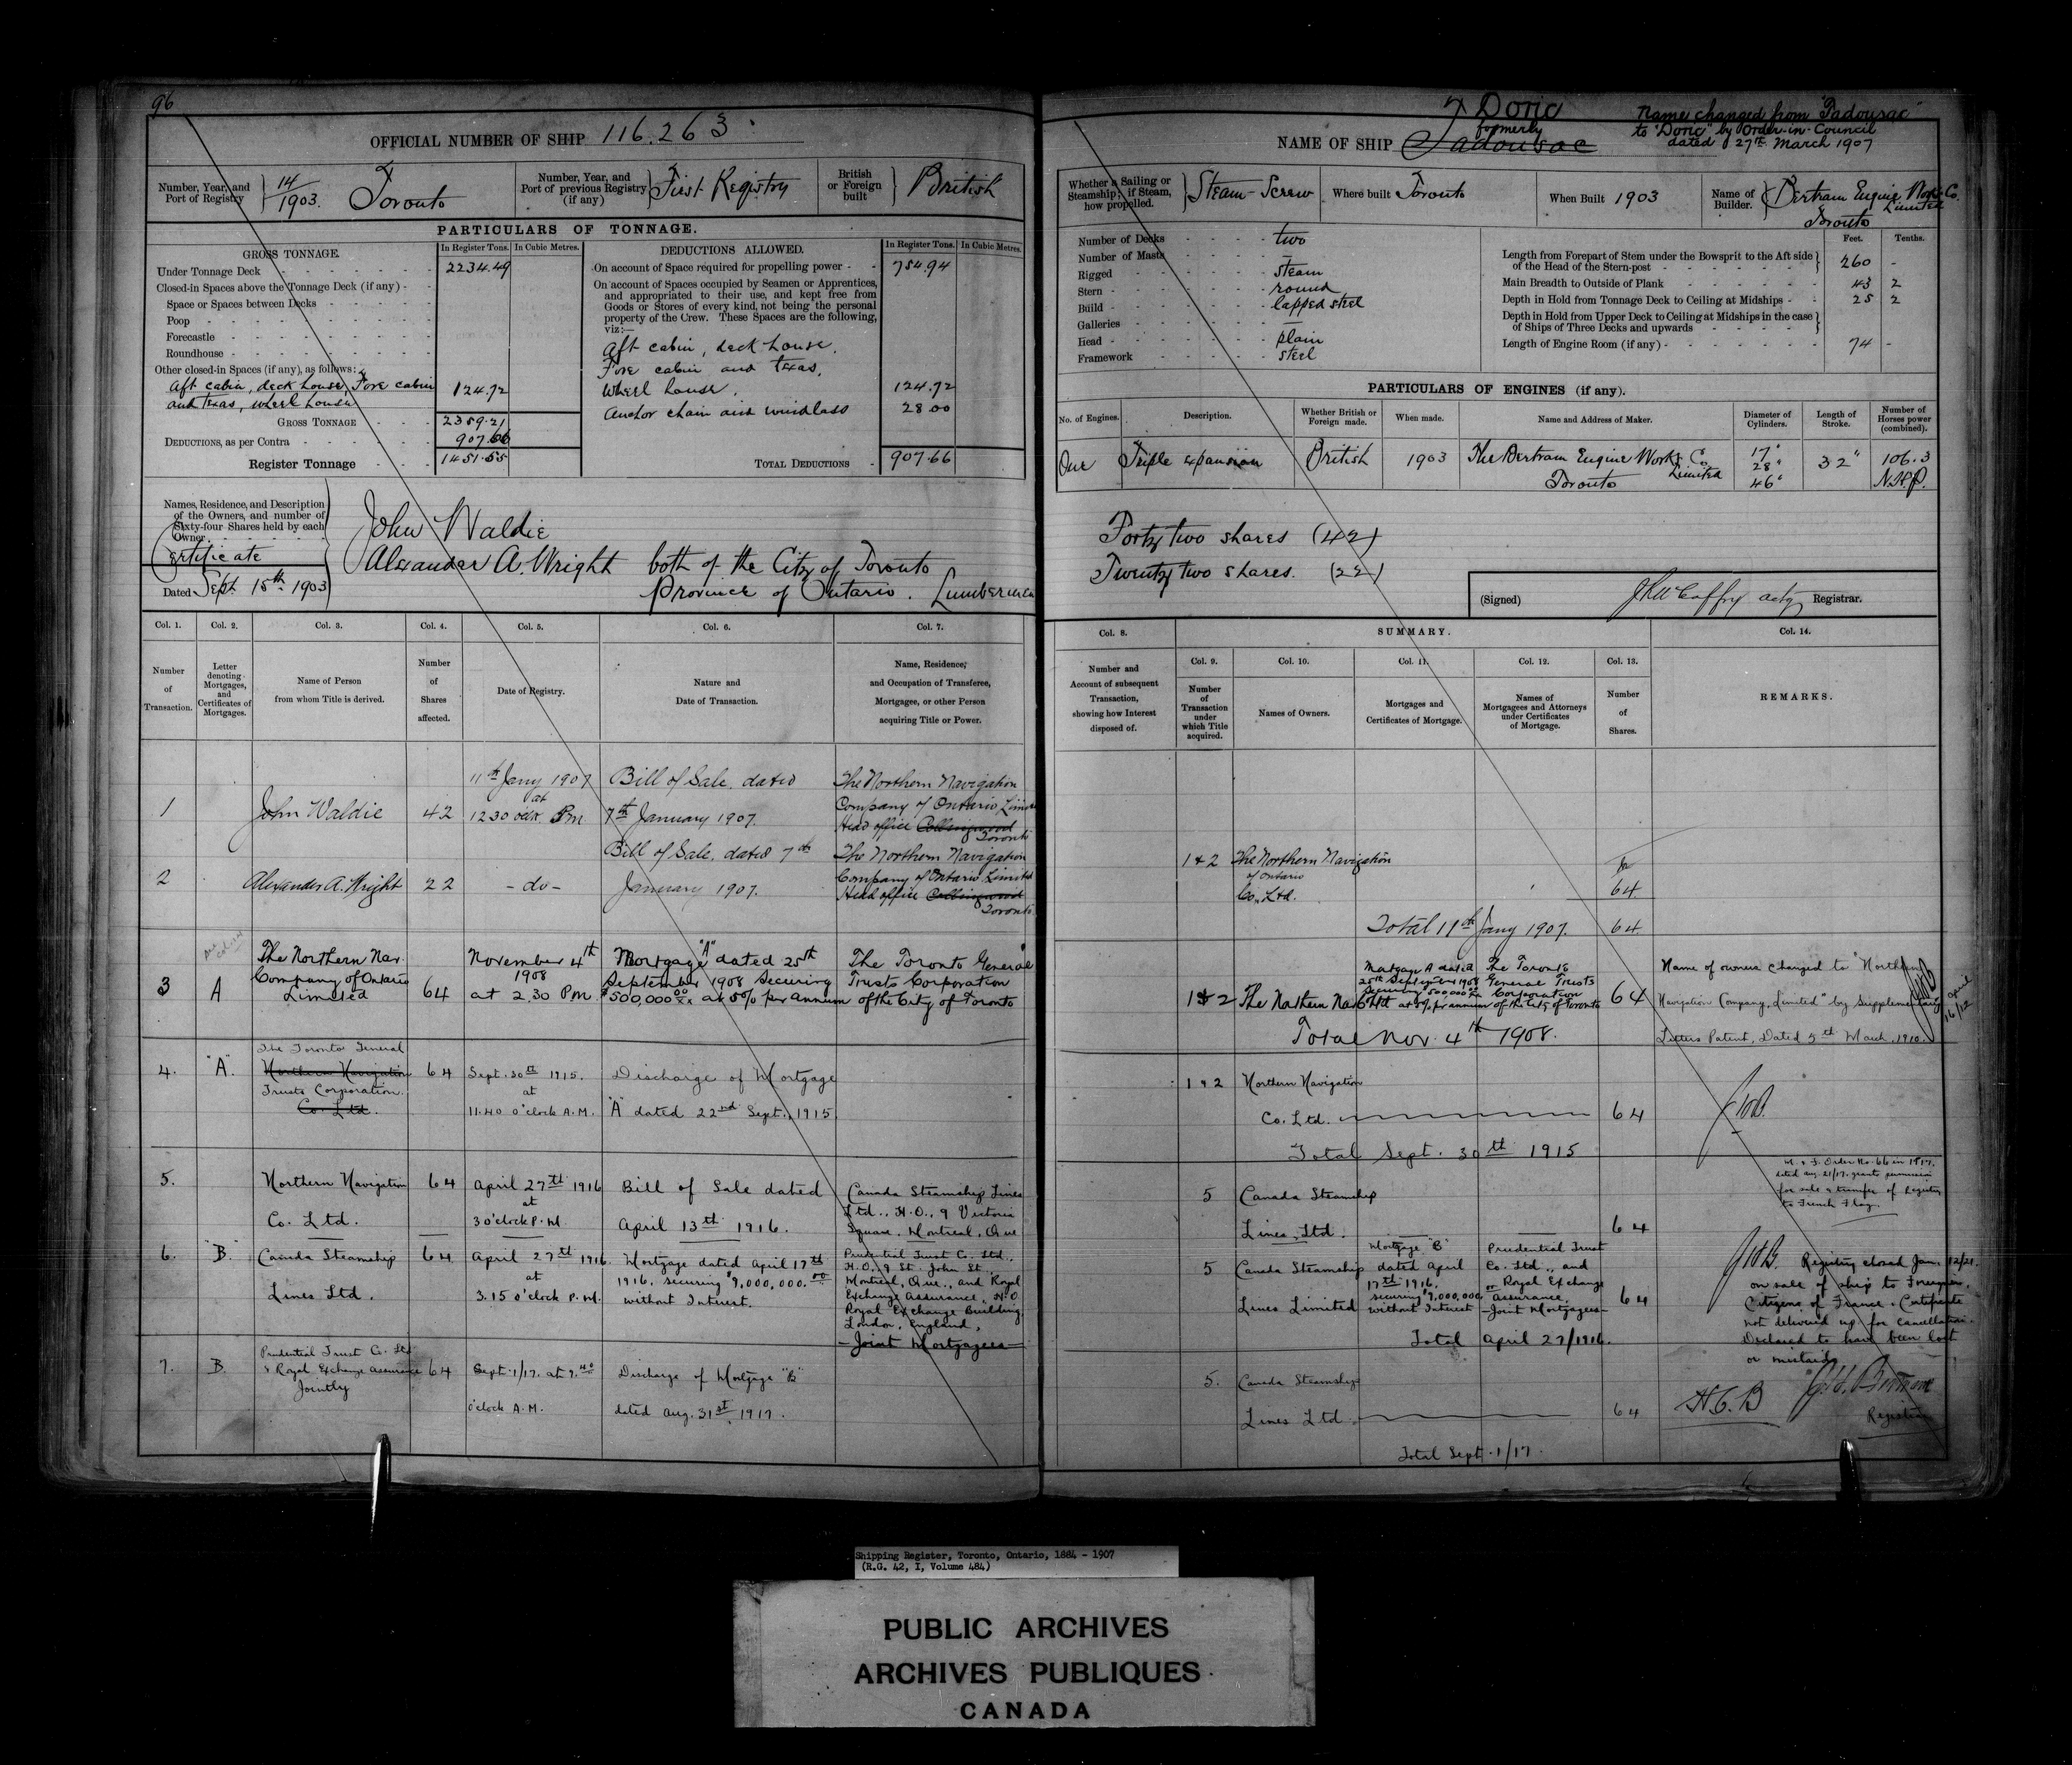 96
OFFICIAL NUMBER OF SHIP 116.263
Number, Year, and Port of Registry } 14/1903. Toronto
Number, Year, and Port of previous Registry (if any) } First Registry
British or Foreign built } British
PARTICULARS OF TONNAGE.
GROSS TONNAGE. In Register Tons. In Cubic Metres.
Under Tonnage Deck 2234.49
Closed-in Spaces above the Tonnage Deck (if any)
Space or Spaces between Decks
Poop
Forecastle
Roundhouse
Other closed-in Spaces (if any), as follows:
Aft cabin, deck house, Fore cabin
and texas, wheel house 124.72
GROSS TONNAGE 2359.21
DEDUCTIONS, as per Contra 907.66
Register Tonnage 1451.55
DEDUCTIONS ALLOWED. In Register Tons. In Cubic Metres.
On account of Space required for propelling power 754.94
On account of Spaces occupied by Seamen or Apprentices,
and appropriated to their use, and kept free from
Goods or Stores of every kind, not being the personal
property of the Crew. These Spaces are the following,
viz:—
Aft cabin, deck house,
Fore cabin and texas,
Wheel house, 124.72
Anchor chain and windlass 28.00
TOTAL DEDUCTIONS 907.66
Names, Residence, and Description
of the Owners, and number of
Sixty-four Shares held by each
Owner
Certificate
Dated Sept. 15th 1903
John Waldie
Alexander A. Wright both of the City of Toronto
Province of Ontario. Lumbermen
Col. 1. Col. 2. Col. 3. Col. 4. Col. 5. Col. 6. Col. 7.
Number of Transaction.
Letter denoting Mortgages, and Certificates of Mortgages.
Name of Person from whom Title is derived.
Number of Shares affected.
Date of Registry.
Nature and Date of Transaction.
Name, Residence, and Occupation of Transferee, Mortgagee, or other Person acquiring Title or Power.
11th Jany 1907 Bill of Sale. dated The Northern Navigation
at Company of Ontario Limited
1 John Waldie 42 12 30 oclk Pm 7th January 1907. Head office Collingwood
Toronto
Bill of Sale. dated 7th The Northern Navigation
2 Alexander A. Wright 22 - do - January 1907. Company of Ontario Limited
Head office Collingwood
Toronto
The Northern Nav. November 4th Mortgage "A" dated 25th The Toronto General
Company of Ontario 1908 September 1908 Securing Trusts Corporation
3 A Limited 64 at 2.30 P.M. $500,000 00/xx at 5% per annum of the City of Toronto
The Toronto General
4. "A". Northern Navigation 64 Sept. 30th 1915. Discharge of Mortgage
Trusts Corporation. at
Co. Ltd. 11.40 o'clock A.M. "A" dated 22nd Sept., 1915.
5. Northern Navigation 64 April 27th 1916 Bill of Sale dated Canada Steamship Lines
at Ltd., H.O., 9 Victoria
Co. Ltd. 3 o'clock P.M. April 13th 1916. Square, Montreal, Que
6. "B." Canada Steamship 64 April 27th 1916. Mortgage dated April 17th Prudential Trust Co. Ltd.,
H.O., 9 St. John St.,
at 1916, securing $9,000,000.00 Montreal, Que., and Royal
Lines Ltd. 3.15 o'clock P.M. without Interest. Exchange Assurance, H.O
Royal Exchange Building,
London, England,
- Joint Mortgagees -
Prudential Trust Co. Ltd
7. B. & Royal Exchange Assurance 64 Sept. 1/17. at 9.40 Discharge of Mortgage "B"
Jointly
o'clock A.M. dated Aug. 31st, 1917.
Doric
formerly
NAME OF SHIP Tadousac
Name changed from "Tadousac"
to "Doric" by Order-in-Council
dated 27th March 1907
Whether a Sailing or Steamship; if Steam, how propelled. } Steam-Screw
Where built Toronto
When Built 1903
Name of Builder. } Bertram Engine Works Co.
Limited
Toronto
Number of Decks two
Number of Masts -
Rigged steam
Stern round
Build lapped steel
Galleries —
Head plain
Framework steel
Feet. Tenths.
Length from Forepart of Stem under the Bowsprit to the Aft side
of the Head of the Stern-post 260 -
Main Breadth to Outside of Plank 43 2
Depth in Hold from Tonnage Deck to Ceiling at Midships 25 2
Depth in Hold from Upper Deck to Ceiling at Midships in the case
of Ships of Three Decks and upwards
Length of Engine Room (if any) 74 -
PARTICULARS OF ENGINES (if any).
No. of Engines. Description. Whether British or Foreign made. When made. Name and Address of Maker. Diameter of Cylinders. Length of Stroke. Number of Horses power (combined).
One Triple expansion British 1903 The Bertram Engine Works Co. 17" 32" 106.3
Limited 28"
Toronto 46" N.H.P.
Forty two shares (42)
Twenty two shares. (22)
(Signed) Registrar.
Col. 8. SUMMARY. Col. 14.
Col. 9. Col. 10. Col. 11. Col. 12. Col. 13.
Number and Account of subsequent Transaction, showing how Interest disposed of.
Number of Transaction under which Title acquired.
Names of Owners.
Mortgages and Certificates of Mortgage.
Names of Mortgagees and Attorneys under Certificates of Mortgage.
Number of Shares.
REMARKS.
1 & 2 The Northern Navigation
of Ontario
Co., Ltd. 64
Total 11th Jany 1907. 64
Mortgage A dated The Toronto
25th September 1908 General Trusts
Securing $500,000 Corporation
1 & 2 The Northern Nav Co Ltd at 5% per annum of the City of Toronto 64
Total Nov. 4th 1908.
Name of owners changed to "Northern
Navigation Company, Limited" by Supplementary
Letters Patent, Dated 5th March, 1910.
April
16/12
1 & 2 Northern Navigation
Co. Ltd. 64
Total Sept. 30th 1915
M. & F. Order No. 66 in 1917,
dated Aug. 21/17. grants permission
for sale & transfer of Registry
to French Flag
5 Canada Steamship
Lines, Ltd. 64
Mortgage "B" Prudential Trust
5 Canada Steamship dated April Co. Ltd., and
17th 1916, Royal Exchange
securing $9,000,000 Assurance,
Lines Limited without Interest - Joint Mortgagees - 64
Total April 27/1916.
Registry closed Jan. 12/21.
on sale of ship to Foreigners,
Citizens of France. Certificate
not delivered up for cancellation.
Declared to have been lost
or mislaid
5. Canada Steamship
Lines Ltd 64
Total Sept. 1/17.
H.C.B
Registrar
Shipping Register, Toronto, Ontario, 1884 - 1907
(R.G. 42, I, Volume 484)
PUBLIC ARCHIVES
ARCHIVES PUBLIQUES
CANADA